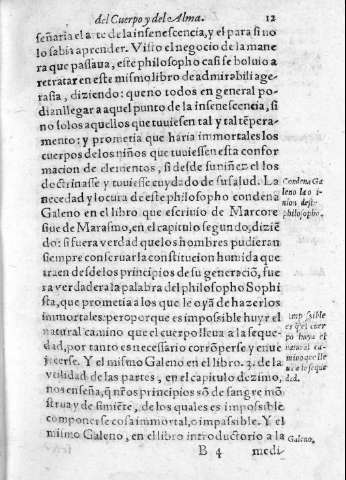 del Cuerpo y del Alma. 12
señaria el arte de la insenescencia, y el para si no
lo sabia aprender. Visto el negocio de la mane
ra que passaua, este philosopho casi se boluio a
retratar en este mismo libro de admirabili age-
rasia, diziendo: que no todos en general po-
dian llegar a aquel punto de la insenescencia, si
no solos aquellos que tuuiesen tal y tal tẽpera-
mento: y prometia que haria immortales los
cuerpos de los niños que tuuiessen esta confor
macion de elementos, si desde su niñez el los
doctrinasse y tuuiesse cuydado de su salud. La
necedad y locura de este philosopho condena
Galeno en el libro que escriuio de Marcore
siue de Marasmo, en el capitulo segundo, diziẽ
do: si fuera verdad que los hombres pudieran
siempre conseruar la constitucion humida que
traen desde los principios de su generaciõ, fue
ra verdadera la palabra del philosopho Sophi
sta, que prometia a los que le oyã de hazerlos
immortales: pero porque es impossible huyr el
natural camino que el cuerpo lleua a la seque-
dad, por tanto es necessario corrõperse, y enue
jecerse. Y el mismo Galeno en el libro. 3. de la
vtilidad de las partes, en el capitulo dezimo,
nos enseña, q̃ nr̃os principios sõ de sangre mõ
strua y de simiẽte, de los quales es impossible
componerse cosa immortal, o impassible. Y el
mismo Galeno, en el libro introductorio a la
B 4 medi
Condena Ga
leno la o i-
nion deste
philosopho.
Impossible
es q̃ el cuer
po huya el
natural ca-
mino que lle
ua a la seque
dad.
Galeno.